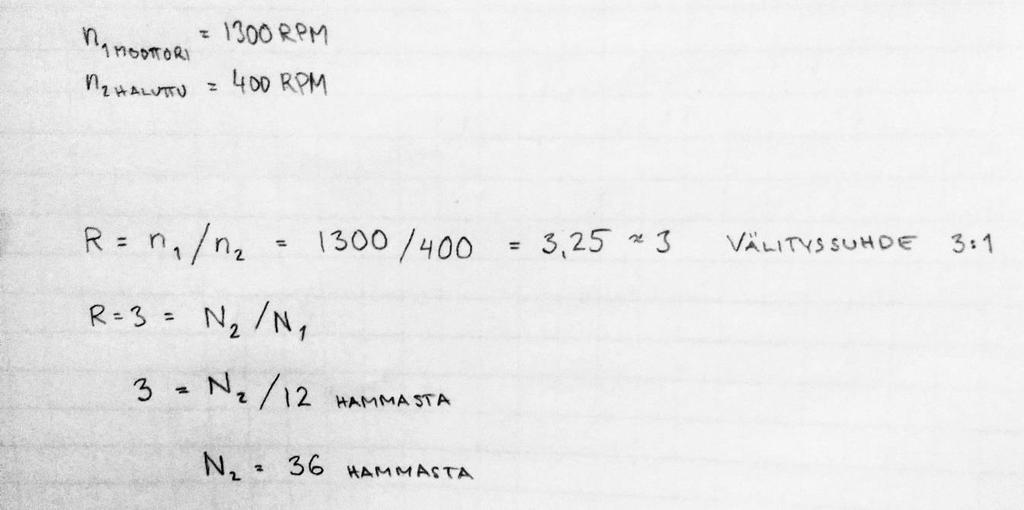 n₁ MOOTTORI = 1300 RPM
n₂ HALUTTU = 400 RPM
R = n₁/n₂ = 1300/400 = 3,25 ≈ 3 VÄLITYSSUHDE 3:1
R=3 = N₂/N₁
3 = N₂/12 HAMMASTA
N₂ = 36 HAMMASTA